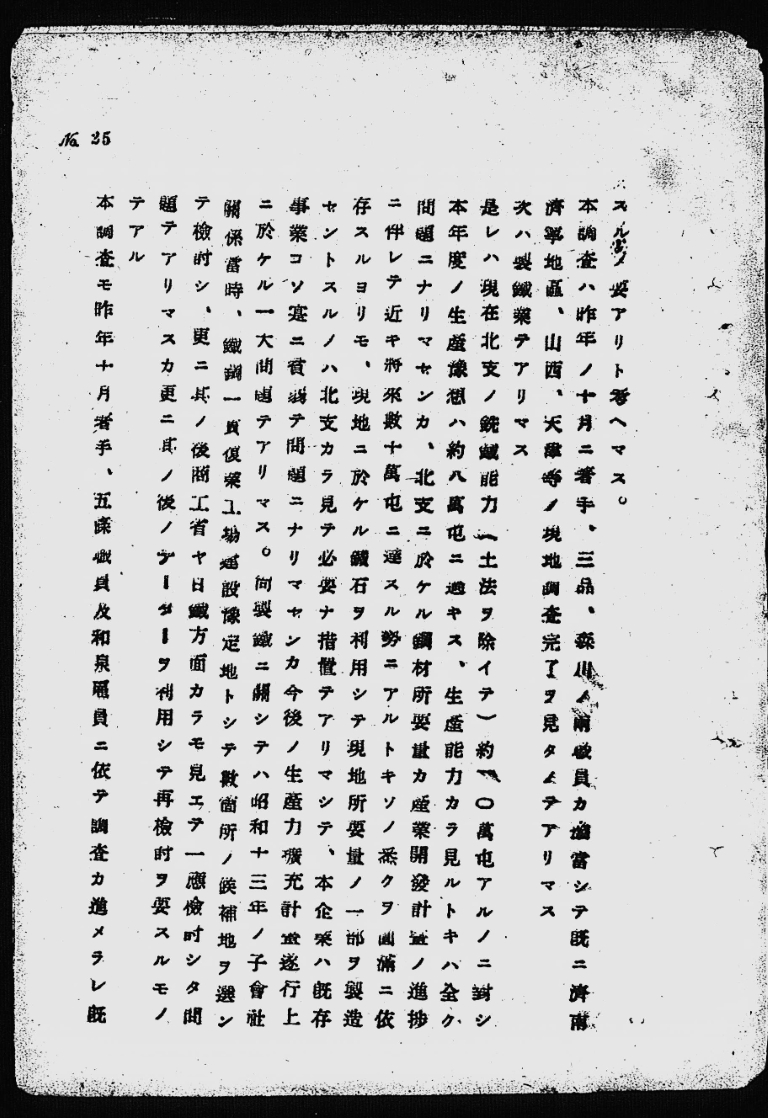 No. 25
スルノ要アリト考ヘマス。
本調査ハ昨年ノ十月ニ著手、三品、森川ノ兩職員カ擔當シテ既ニ濟南
濟寧地區、山西、天津等ノ現地調査完了ヲ見タノテアリマス
次ハ製鐵業テアリマス
是レハ現在北支ノ銑鐵能力(土法ヲ除イテ)約 〇萬屯アルノニ對シ
本年度ノ生產豫想ハ約八萬屯ニ過キス、生產能力カラ見ルトキハ全ク
問題ニナリマセンカ、北支ニ於ケル鋼材所要量カ產業開發計畫ノ進捗
ニ伴レテ近キ將來數十萬屯ニ達スル勢ニアルトキソノ悉クヲ圓滿ニ依
存スルヨリモ、現地ニ於ケル鐵石ヲ利用シテ現地所要量ノ一部ヲ製造
セントスルノハ北支カラ見テ必要ナ措置テアリマシテ、本企業ハ既存
事業コソ寔ニ貧弱テ問題ニナリマセンカ今後ノ生產力擴充計畫遂行上
ニ於ケル一大問題テアリマス。尚製鐵ニ關シテハ昭和十三年ノ子會社
關係當時、鐵鋼一貫復業工場建設豫定地トシテ數箇所ノ候補地ヲ選ン
テ檢討シ、更ニ其ノ後商工省ヤ日鐵方面カラモ見エテ一應檢討シタ問
題テアリマスカ更ニ其ノ後ノデーターヲ利用シテ再檢討ヲ要スルモノ
テアル
本調査モ昨年十月著手、五 職員及和泉雇員ニ依テ調査カ進メラレ既